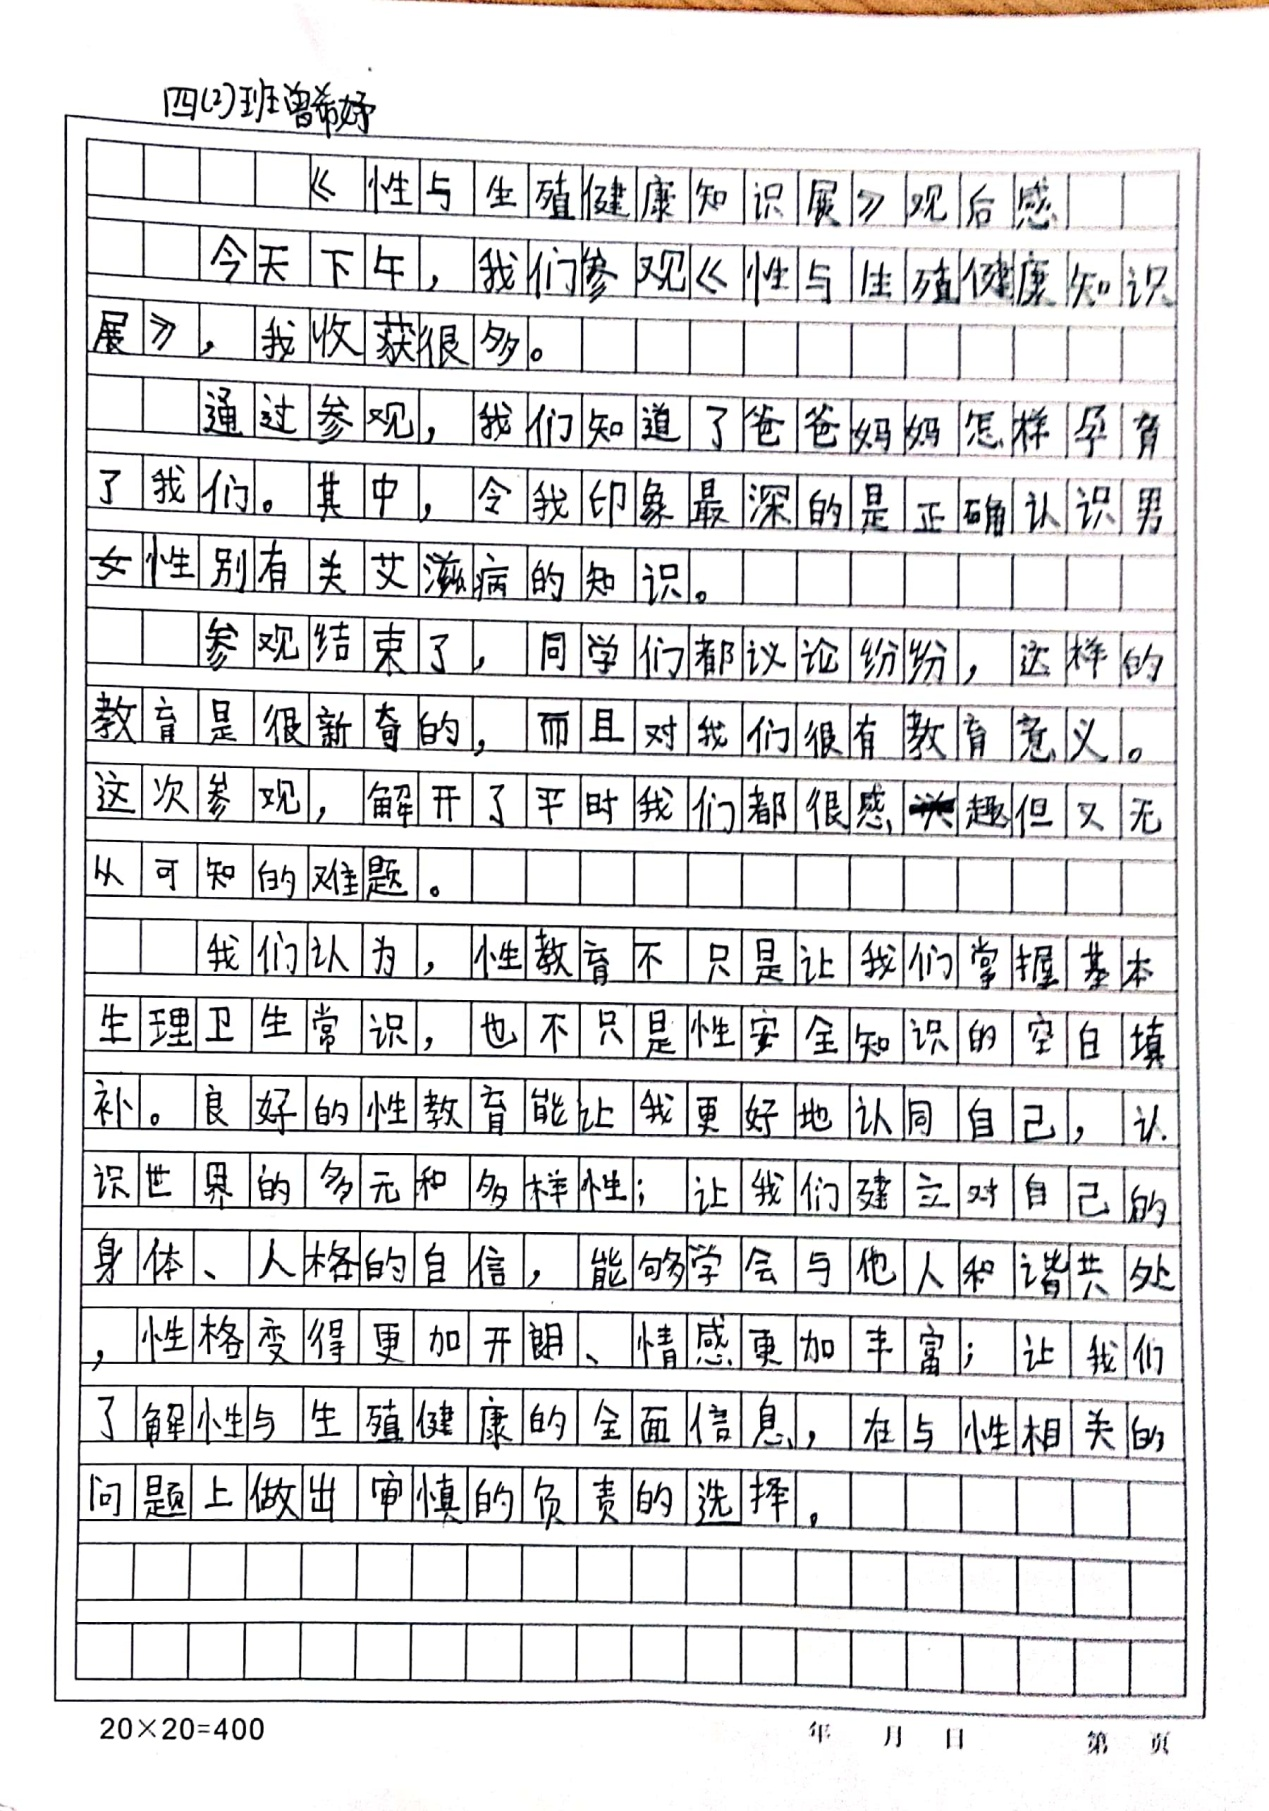 四(2)班曾希妤
《性与生殖健康知识展》观后感
今天下午，我们参观《性与生殖健康知识
展》，我收获很多。
通过参观，我们知道了爸爸妈妈怎样孕育
了我们。其中，令我印象最深的是正确认识男
女性别有关艾滋病的知识。
参观结束了，同学们都议论纷纷，这样的
教育是很新奇的，而且对我们很有教育意义。
这次参观，解开了平时我们都很感趣但又无
从可知的难题。
我们认为，性教育不只是让我们掌握基本
生理卫生常识，也不只是性安全知识的空白填
补。良好的性教育能让我更好地认同自己，认
识世界的多元和多样性；让我们建立对自己的
身体、人格的自信，能够学会与他人和谐共处
，性格变得更加开朗、情感更加丰富；让我们
了解性与生殖健康的全面信息，在与性相关的
问题上做出审慎的负责的选择。
20×20=400
年 月 日 第 页